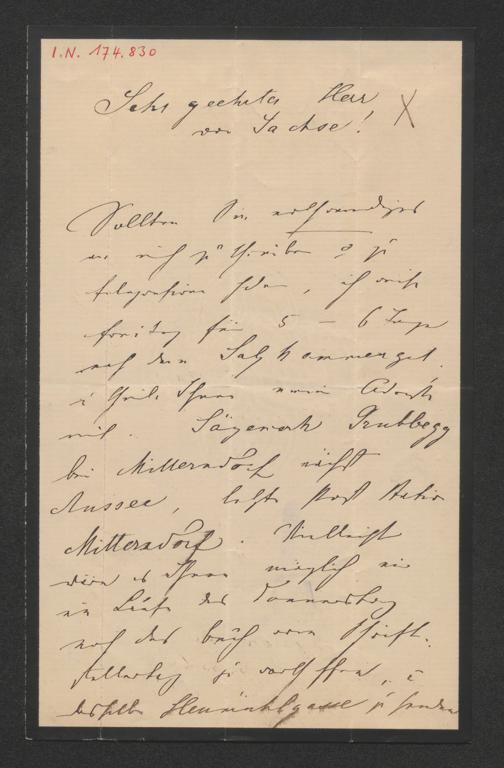 I.N. 174.830
Sehr geehrter Herr
von Sachse!
Sollten Sie nothwendiges
an mich zu schreiben o. zu
telegrafieren haben, ich reise
Freitag für 5 – 6 Tage
nach dem Salzkammergut
u. theile Ihnen meine Adresse
mit. Sägewerk Grubbegg
bei Mitterndorf nächst
Aussee, letzte Post Station
Mitterndorf. Vielleicht
wäre es Ihnen möglich mir
im Laufe des Donnerstag
noch das buch vom Schrift-
stellertag zu verschaffen, u.
dasselbe Heinrichsgasse zu senden